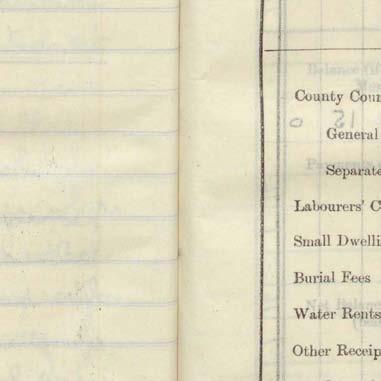 County Coun
General
Separate
Labourers' C
Small Dwelli
Burial Fees
Water Rents
Other Receip